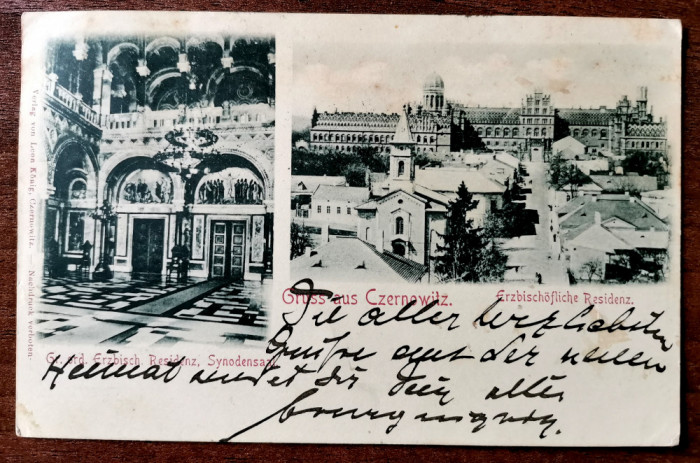 Verlag von Leon König, Czernowitz. — Nachdruck verboten.
Gruss aus Czernowitz.
Erzbischöfliche Residenz.
Gr. ord. Erzbisch. Residenz, Synodensaal
Die aller herzlichsten
Grüße aus der neuen
Heimat sendet dir dein alter